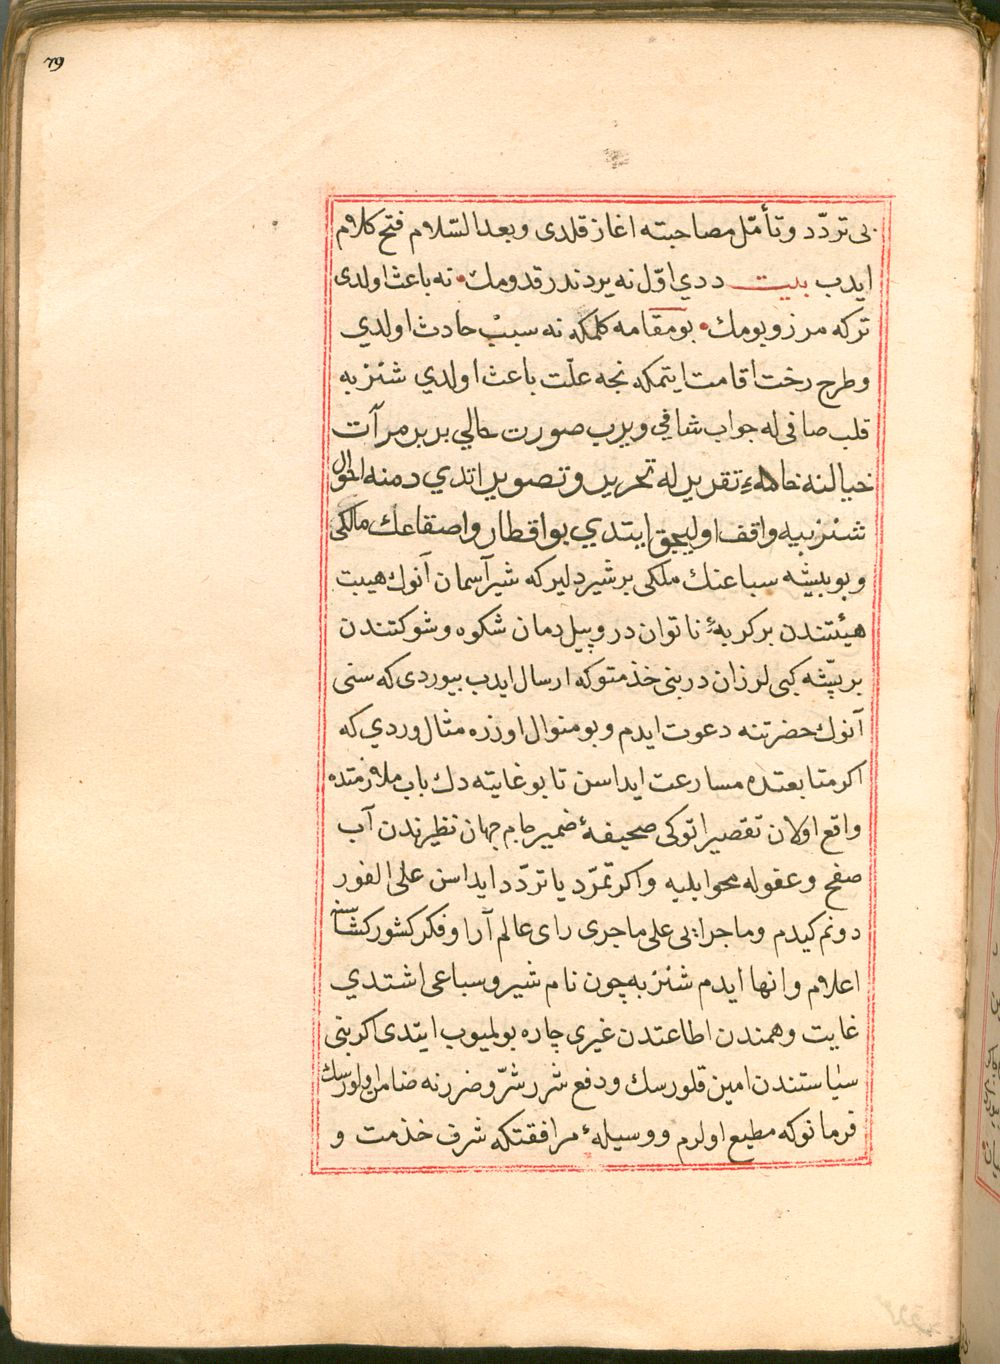 79
بی تردّد و تأمّل مصاحبته اغاز قلدی و بعد السّلام فتح کلام
ایدب بیت ددي اوّل نه یردندر قدومك • نه باعث اولدی
ترکه مرز و بومك • بو مقامه کلمکه نه سبب حادث اولدي
و طرح رخت اقامت ایتمکه نجه علّت باعث اولدي شنزبه
قلب صافی له جواب شافي ویرب صورت حالي بر بر مرآت
خیالنه خامهٔ تقریر له تحریر و تصویر اتدي دمنه احوال
شنزبیه واقف اولیجق ایتدي بو اقطار و اصقاعك مالکی
و بو بیشه سباعنك ملکی بر شیر دلیر که شیر آسمان آنوك هیبت
هیئتندن بر کربهٔ ناتوان در و پیل دمان شکوه و شوکتندن
بر پشّه کبی لرزان در بنی خذمتوکه ارسال ایدب بیوردی که سنی
آنوك حضرتنه دعوت ایدم و بو منوال اوزره مثال وردي که
اکر متابعتده مسارعت ایداسن تا بو غایته دك باب ملازمتده
واقع اولان تقصیراتوکی صحیفهٔ ضمیر جام جهان نظیرندن آب
صفح و عفوله محو ایلیه و اکر تمرّد یا تردّد ایداسن علی الفور
دونم کیدم و ماجرایی علی ماجری رای عالم آرا و فکر کشور کشاسنه
اعلام و انها ایدم شنزبه چون نام شیر و سباعی اشتدي
غایت وهمندن اطاعتدن غیری چاره بولمیوب ایتدی اکر بنی
سیاستندن امین قلورسك و دفع شرر شرّ و ضررنه ضامن اولورسك
فرمانوکه مطیع اولرم و وسیلهٔ مرافقتکه شرف خذمت و